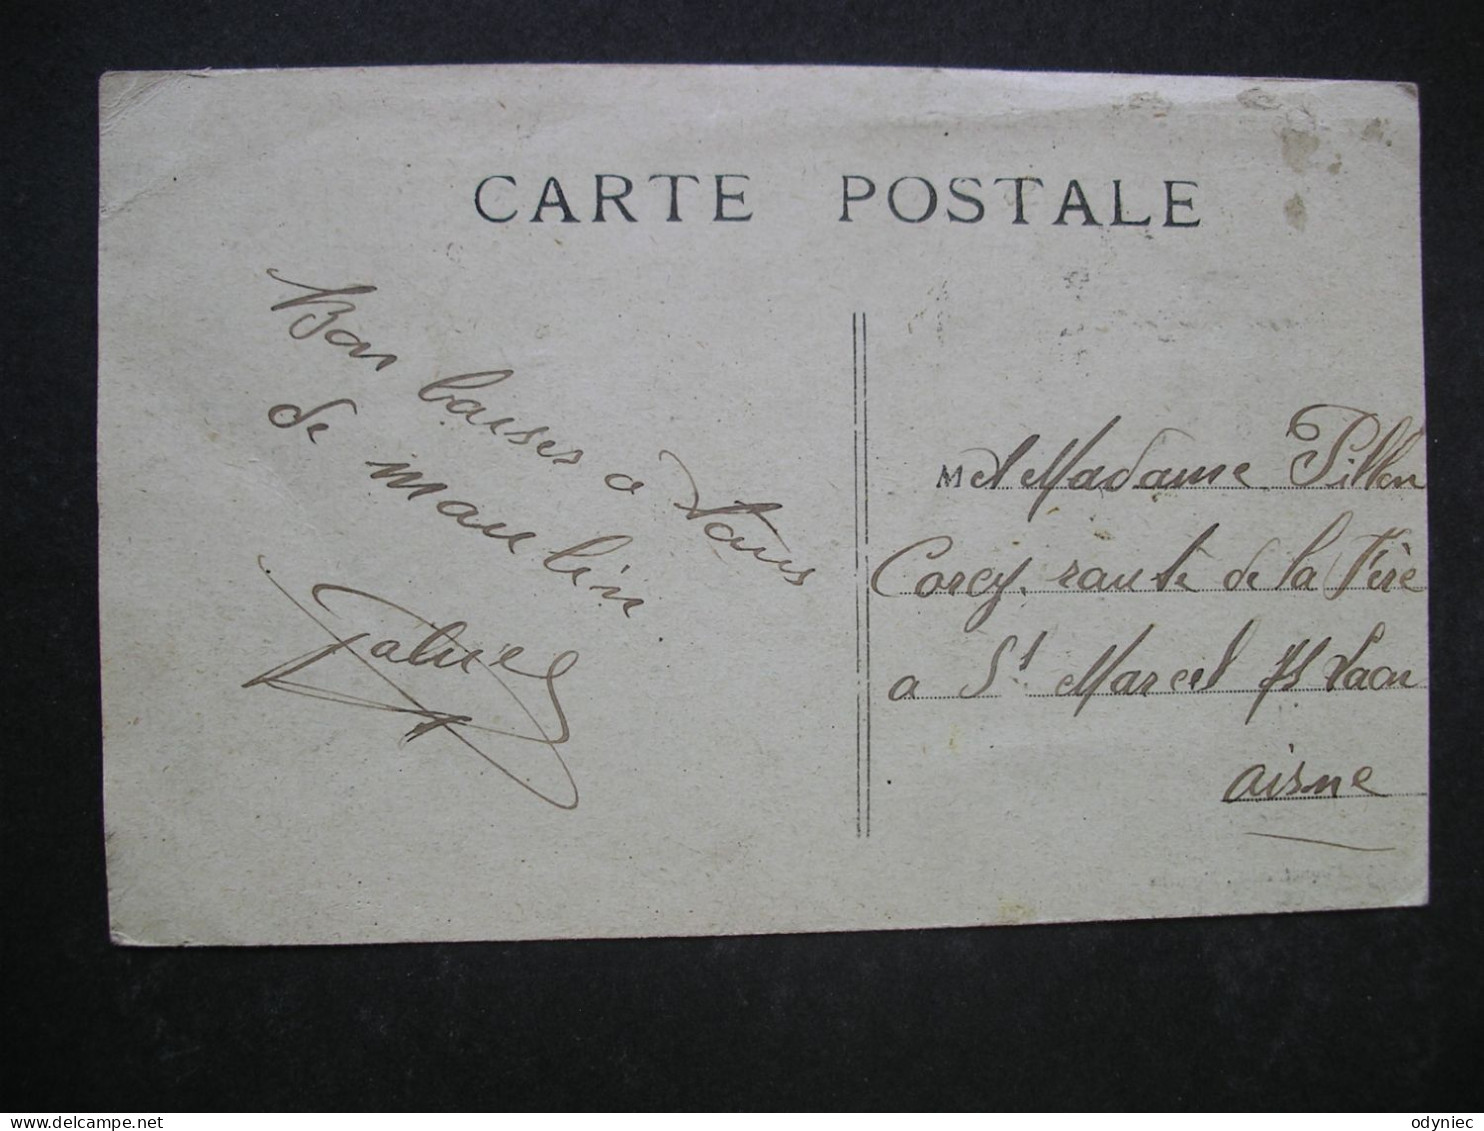 CARTE POSTALE
Bon baises a tous
de moulin
Gabriel
M et Madame Pillon
Corcy. route de la Fère
a St Marcel p/s Laon
aisne
odyniec